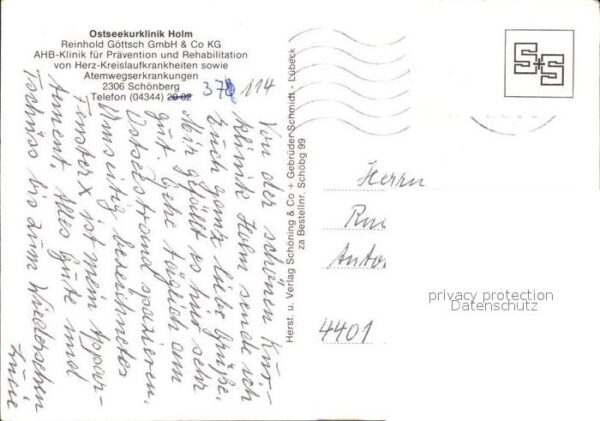 Ostseekurklinik Holm
Reinhold Göttsch GmbH & Co KG
AHB-Klinik für Prävention und Rehabilitation
von Herz-Kreislauferkrankheiten sowie
Atemwegserkrankungen
2306 Schönberg
Telefon (04344) 20 02 37 114
Von der schönen Kur-
klinik Holm sende ich
Euch ganz liebe Grüße.
Mir gefällt es hier sehr
gut. Gehe täglich am
Ostseestrand spazieren.
Umseitig bezeichnetes
Fenster x ist mein Appar-
tement. Alles Gute und
Tschüss bis zum Wiedersehen
Herst. u. Verlag Schöning & Co + Gebrüder Schmidt - Lübeck
za Bestellnr. Schöbg 99
S+S
Herrn
Anto
4401
privacy protection
Datenschutz